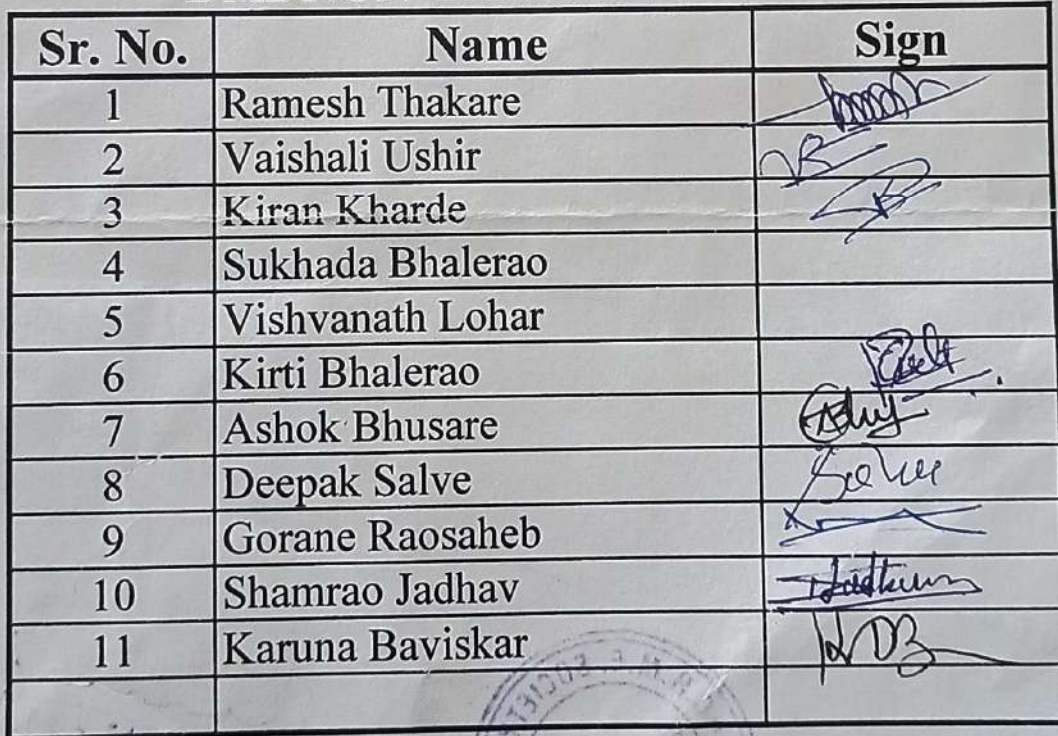 Sr. No. Name Sign
1 Ramesh Thakare
2 Vaishali Ushir
3 Kiran Kharde
4 Sukhada Bhalerao
5 Vishvanath Lohar
6 Kirti Bhalerao
7 Ashok Bhusare
8 Deepak Salve
9 Gorane Raosaheb
10 Shamrao Jadhav
11 Karuna Baviskar